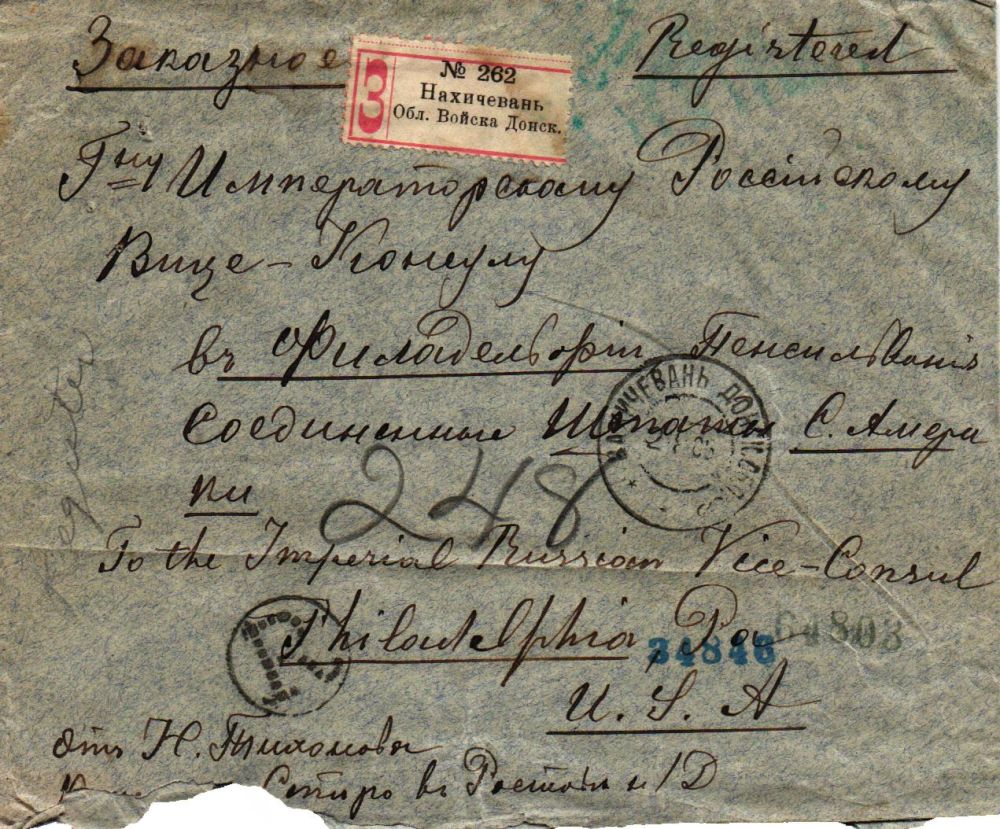 Заказное Registered
З
№ 262
Нахичевань
Обл. Войска Донск.
Гну Императорскому Россійскому
Вице-Консулу
въ Филадельфіи, Пенсильванія
Соединенные Штаты С. Амери
ки
248
To the Imperial Russian Vice-Consul
Philadelphia, Pa
34846 64803
U. S. A
отъ Н. Тихонова
въ Ростовѣ н/Д
Register
НАХИЧЕВАНЬ ДОНСК. ОБЛ.